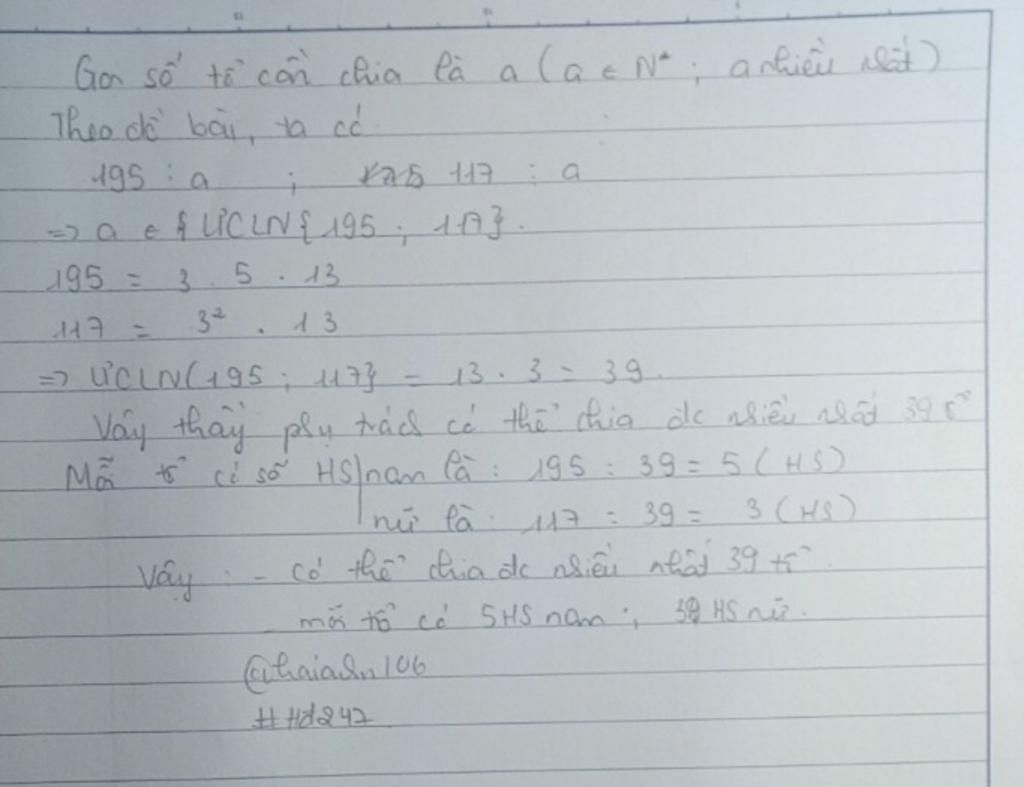 Gọi số tổ cần chia là a (a ∈ N* ; a nhiều nhất)
Theo đề bài, ta có
195 ⋮ a ; 117 ⋮ a
=> a ∈ { ƯCLN{195 ; 117}.
195 = 3 . 5 . 13
117 = 3² . 13
=> ƯCLN(195 ; 117} = 13 . 3 = 39.
Vậy thầy phụ trách có thể chia đc nhiều nhất 39 tổ
Mỗi tổ có số HS nam là : 195 : 39 = 5 (HS)
nữ là : 117 : 39 = 3 (HS)
Vậy : - có thể chia đc nhiều nhất 39 tổ
- mỗi tổ có 5HS nam ; 3 HS nữ.
@haianh106
#Hd247